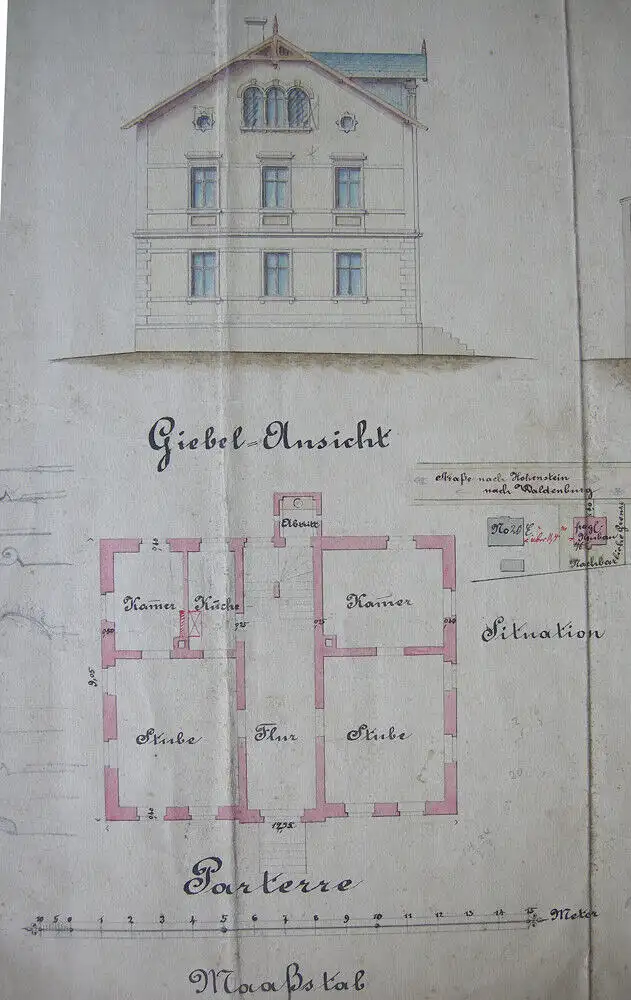 Giebel=Ansicht
Straße nach Hohenstein
nach Waldenburg
No 20
projl.
Neubau
Nachbar
Situation
Abtritt
Kam̅er
Küche
Kam̅er
0,40
0,25
0,25
9,05
Stube
Flur
Stube
0,40
12,35
Parterre
10 5 0 1 2 3 4 5 6 7 8 9 10 11 12 13 14 15 Meter
Maaßstab